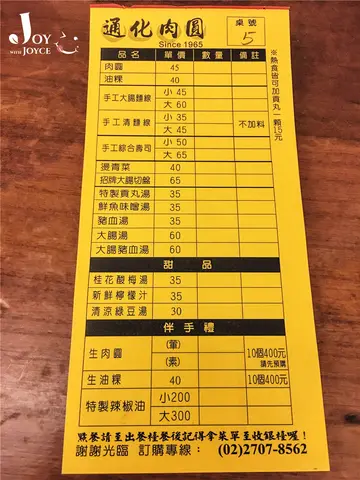 JOY
WITH JOYCE
通化肉圓
Since 1965
桌號
5
品名 單價 數量 備註
肉圓 45
油粿 40
手工大腸麵線 小 45
大 60
手工清麵線 小 35 不加料
大 45
手工綜合壽司 小 50
大 65
燙青菜 40
招牌大腸切盤 65
特製貢丸湯 35
鮮魚味噌湯 35
豬血湯 35
大腸湯 60
大腸豬血湯 60
※熱食皆可加貢丸一顆15元
甜品
桂花酸梅湯 35
新鮮檸檬汁 35
清涼綠豆湯 30
伴手禮
生肉圓 (葷) 10個400元
(素) 請先預購
生油粿 40 10個400元
特製辣椒油 小200
大300
點餐請至出餐檯餐後記得拿菜單至收銀檯喔！
謝謝光臨 訂購專線： (02)2707-8562